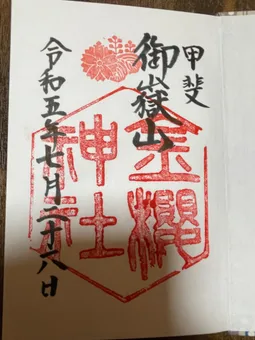 甲斐
御嶽山
金櫻
神社
令和五年七月二十八日